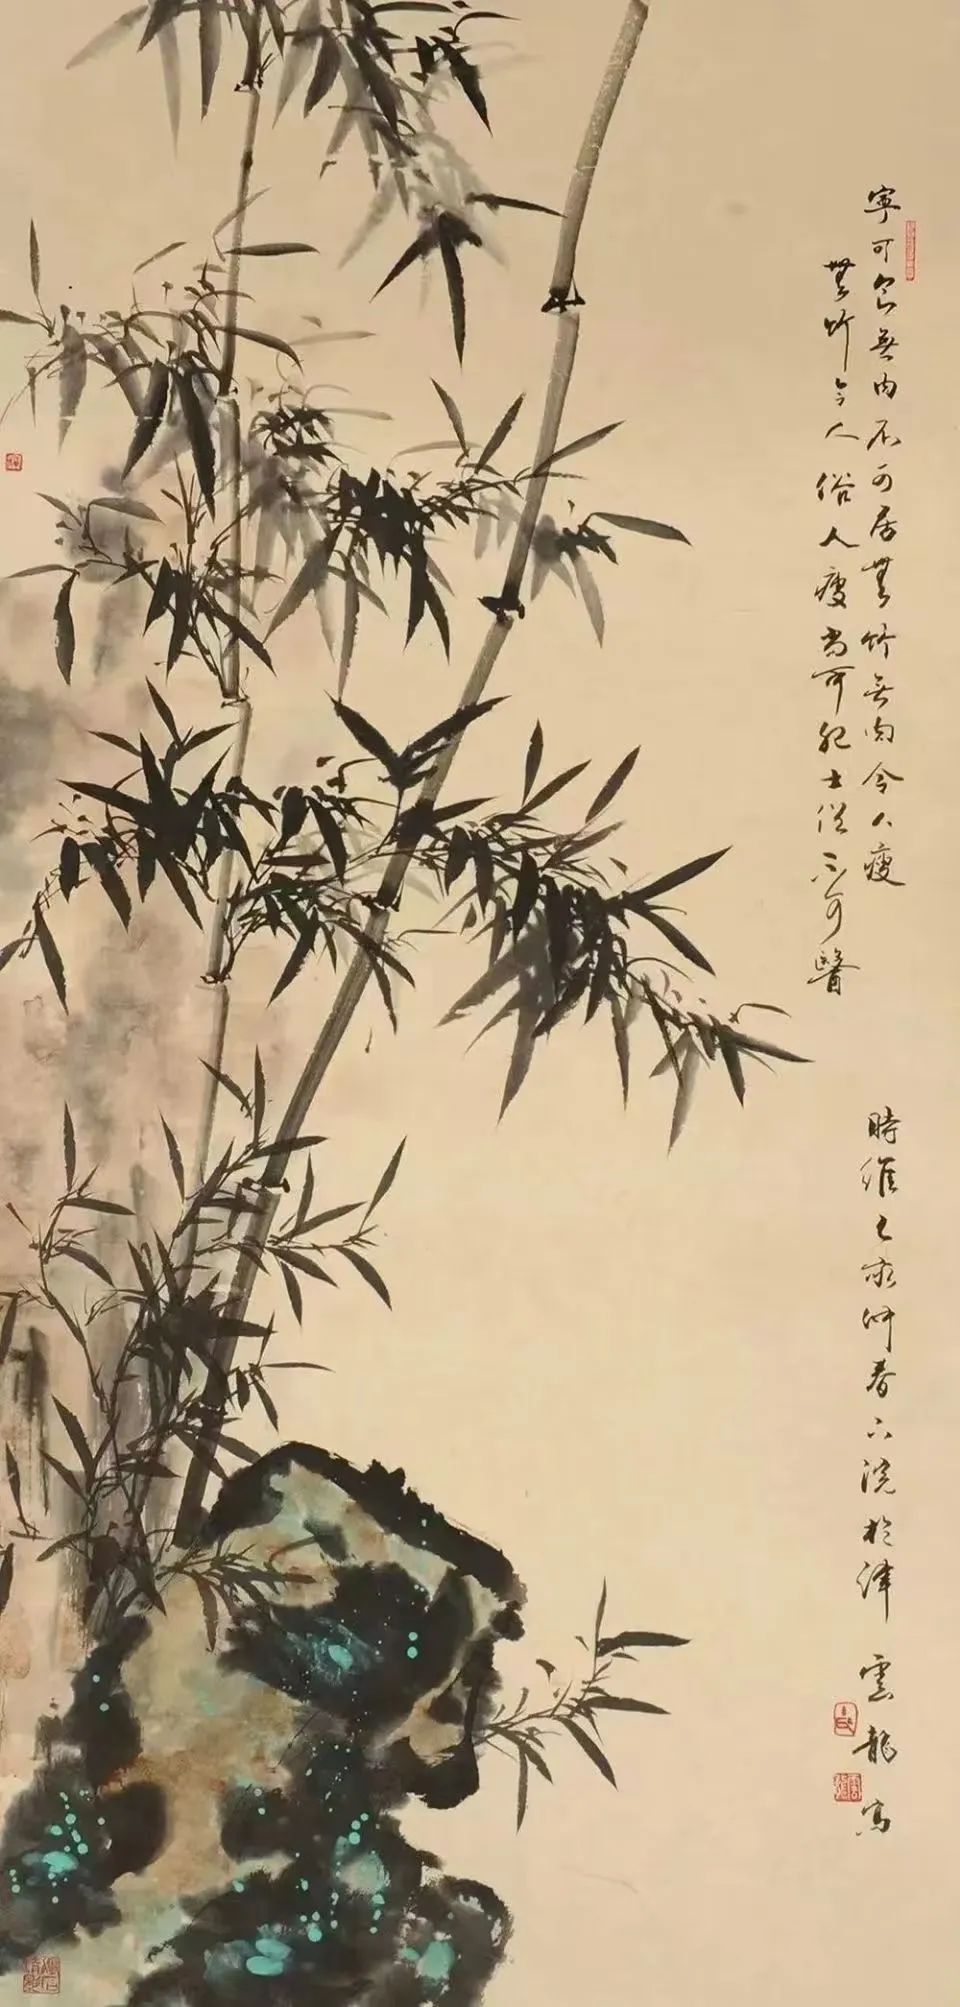 寧可食無肉不可居無竹無肉令人瘦
無竹令人俗人瘦尚可肥士俗不可醫
時維乙亥仲春下浣於津雲龍寫